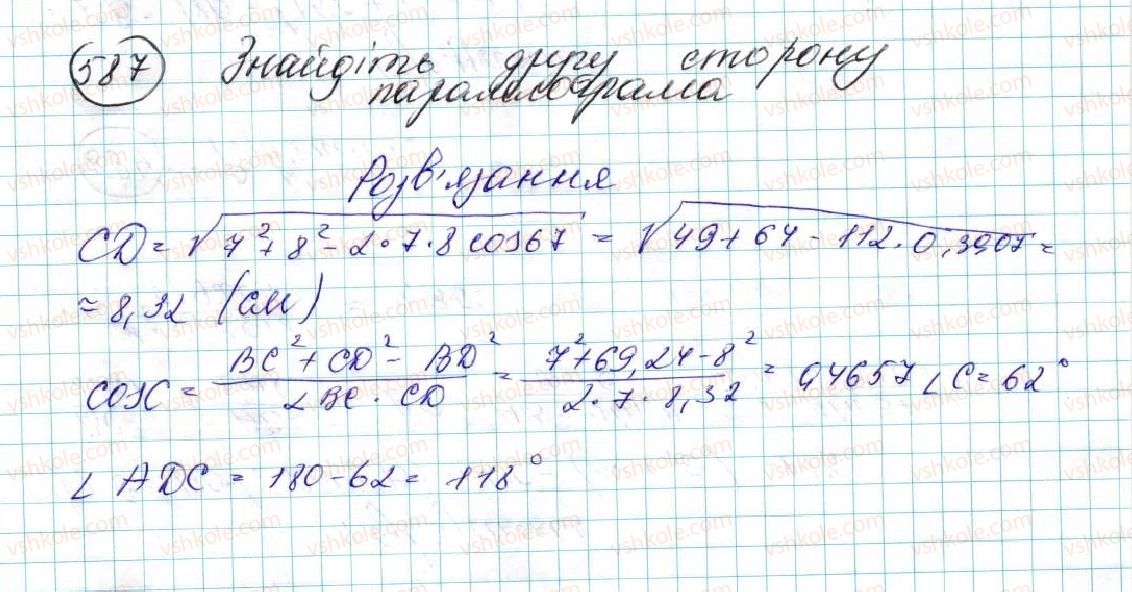 587 Знайдіть другу сторону
паралелограма
Розв'язання
CD = √(7² + 8² - 2·7·8 cos67) = √(49 + 64 - 112·0,3907) =
≈ 8,32 (см)
cosC = (BC² + CD² - BD²)/(2BC·CD) = (7² + 69,24 - 8²)/(2·7·8,32) = 0,4657 ∠C = 62°
∠ADC = 180 - 62 = 118°